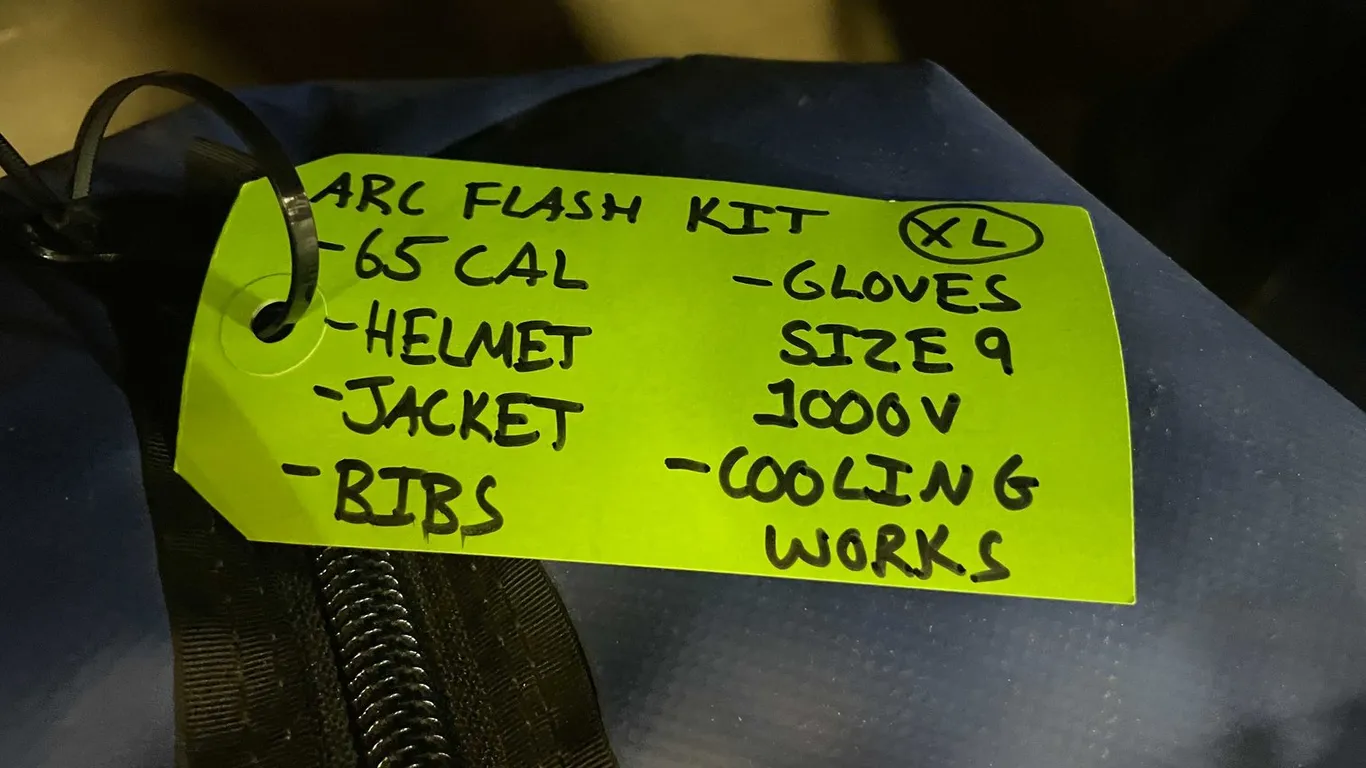 ARC FLASH KIT XL
-65 CAL
-HELMET
-JACKET
-BIBS
-GLOVES
SIZE 9
1000V
-COOLING
WORKS